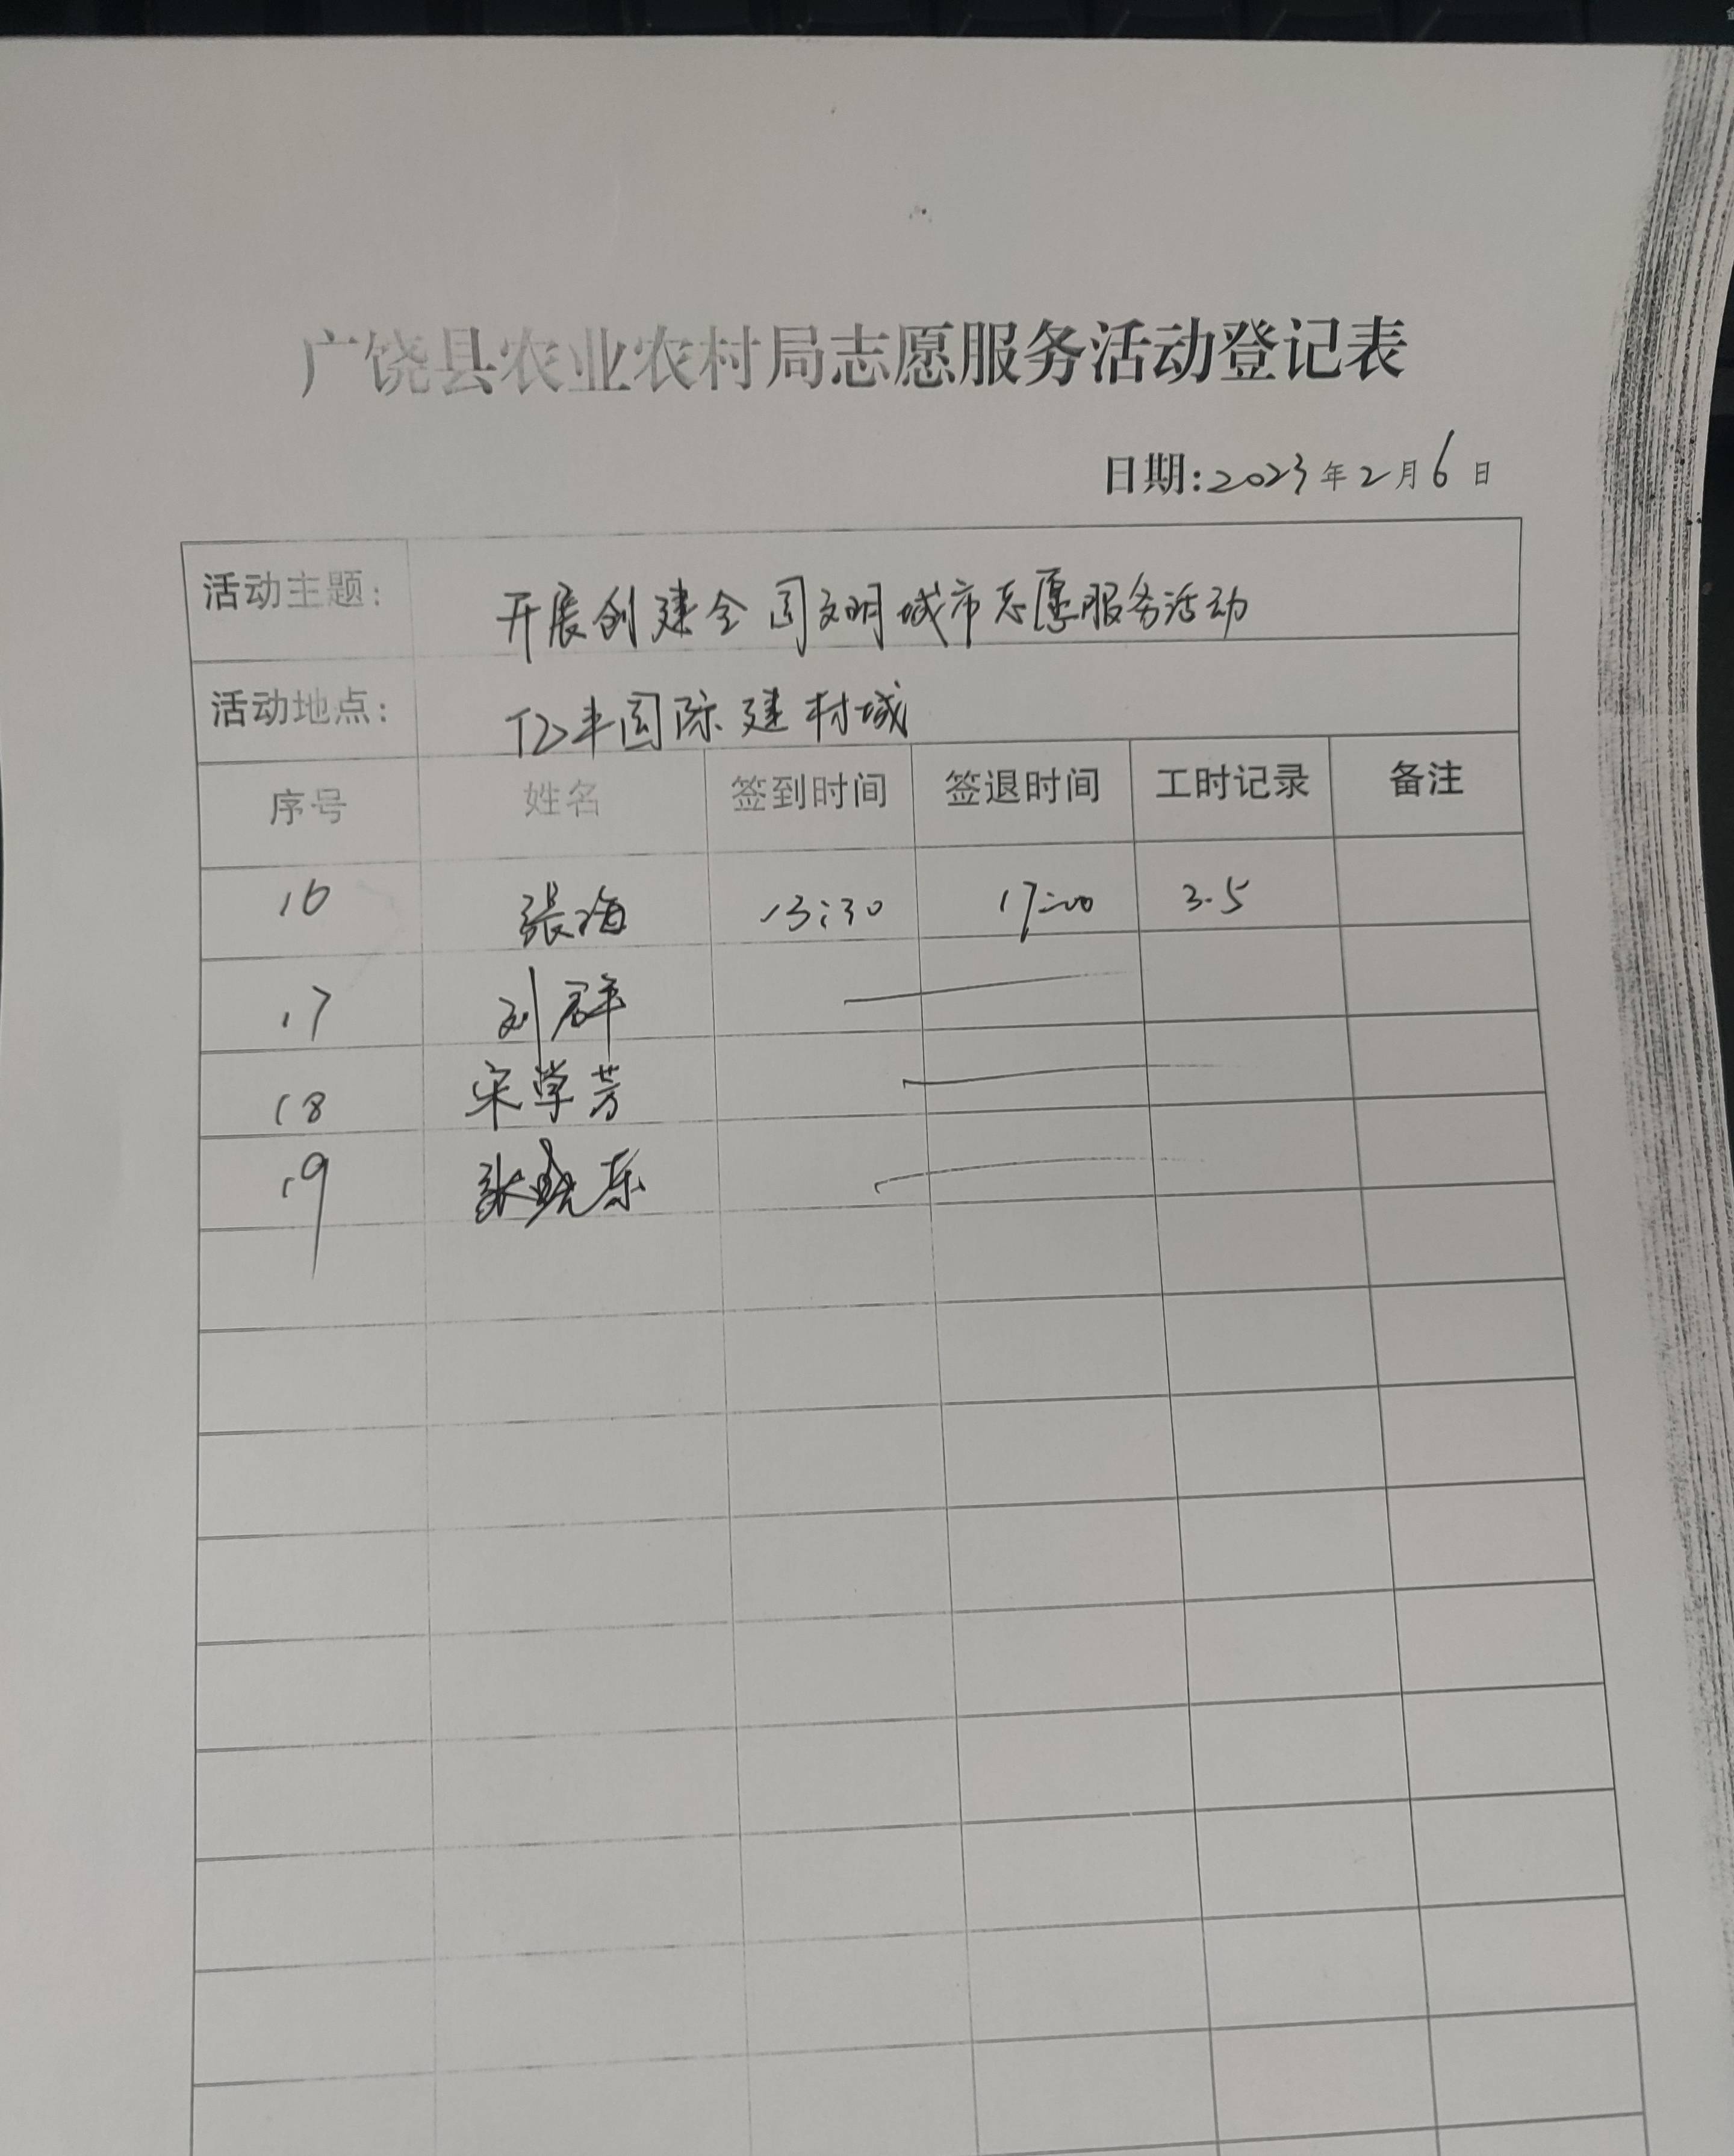 广饶县农业农村局志愿服务活动登记表
日期:2023年2月6日
活动主题: 开展创建全国文明城市志愿服务活动
活动地点: 亿丰国际建材城
序号 姓名 签到时间 签退时间 工时记录 备注
16 張海 13:30 17:00 3.5
17 刘群
18 宋学芳
19 张晓东